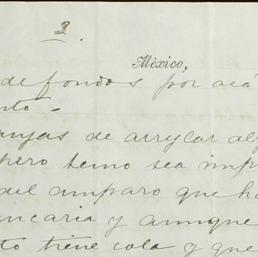 2.
México,
de fondos por acá
nto -
de arreglar al
pero temo sea imp
del amparo que h
ncaria y aunque
to tiene cola y que